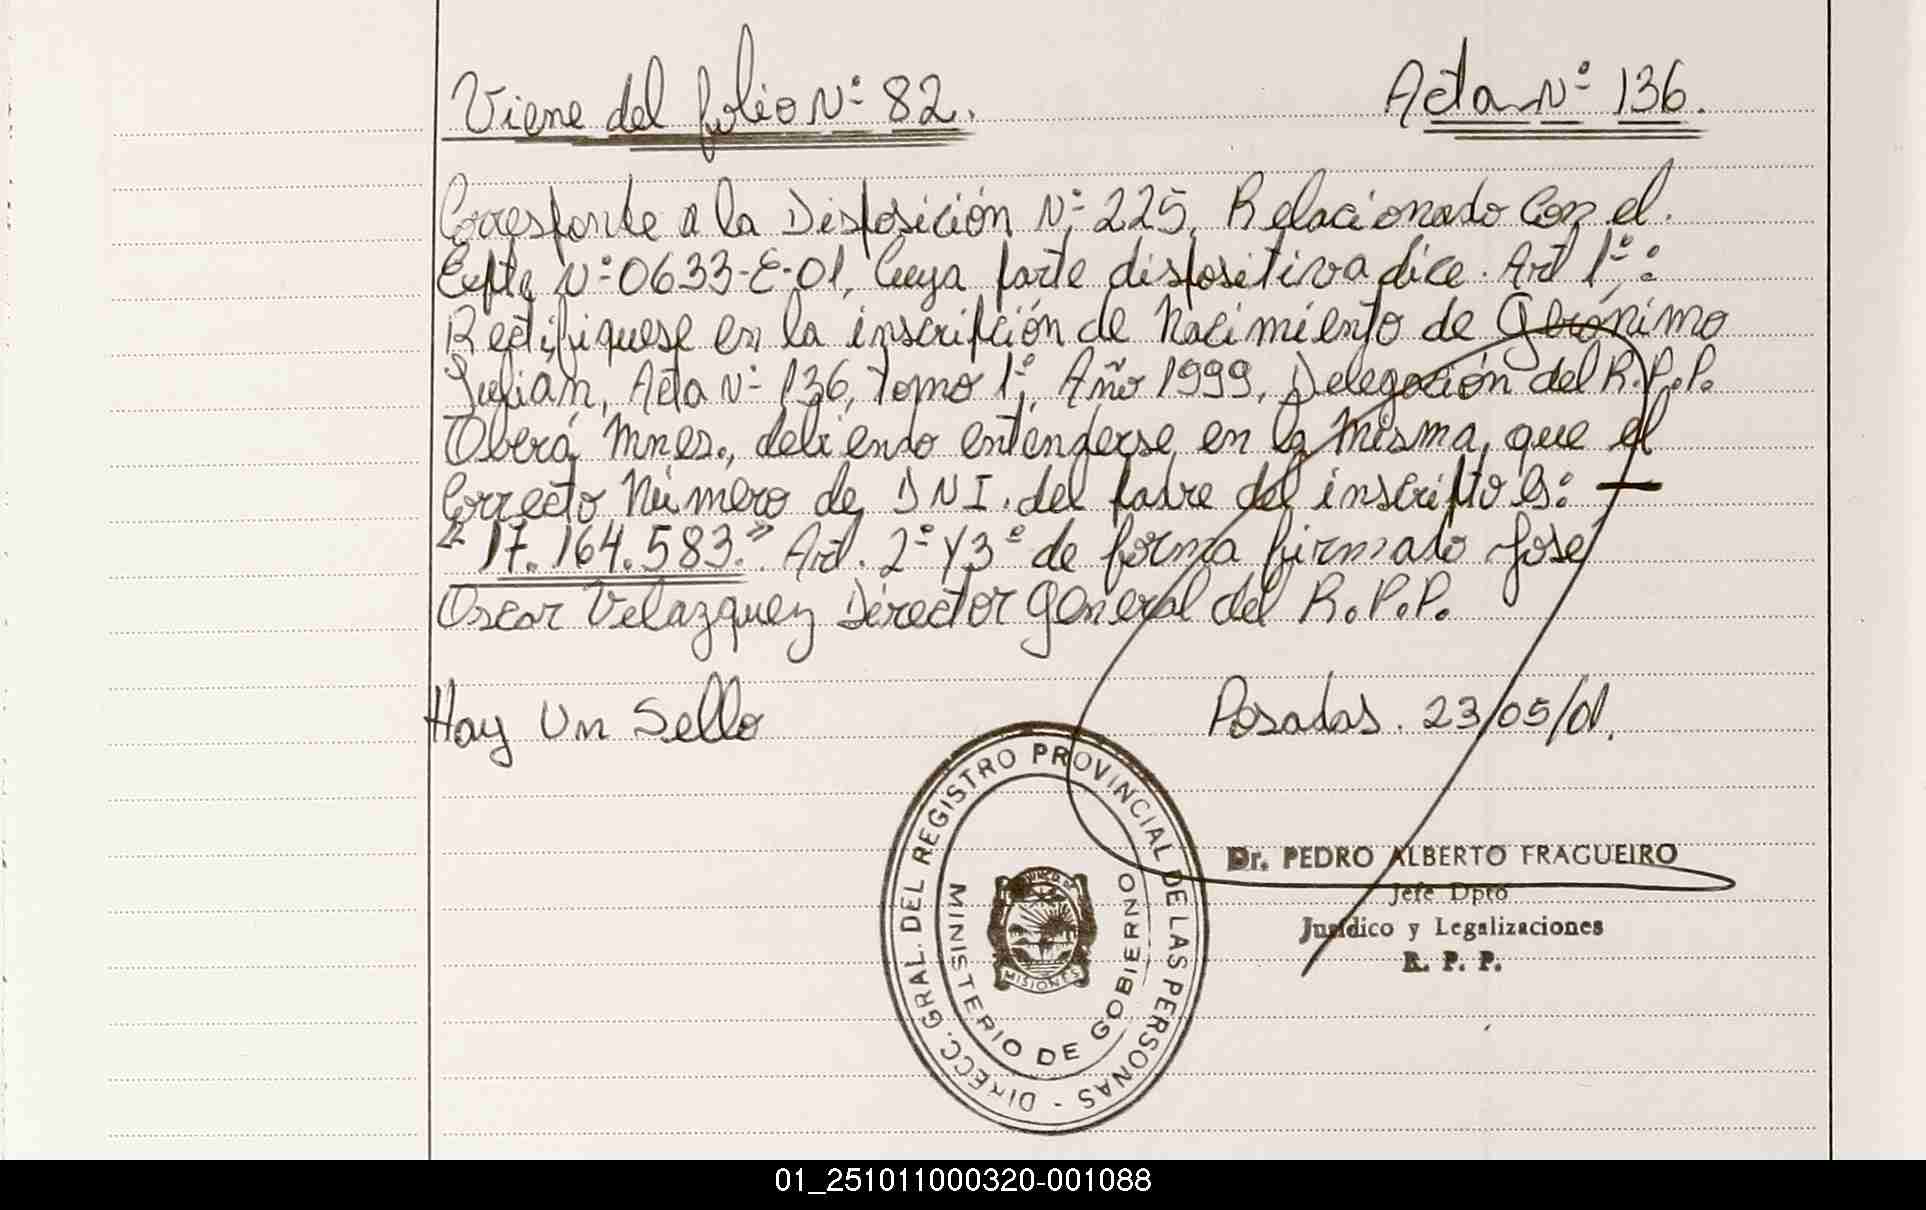 Viene del folio Nº 82.
Acta Nº 136.
Corresponde a la Disposición Nº 225, Relacionado con el.
Expte Nº 0633-E-01, Cuya parte dispositiva dice. Art 1º:
Rectifiquese en la inscripción de Nacimiento de Gerónimo
Julian, Acta Nº 136, Tomo 1º, Año 1999, Delegación del R.P.P.
Oberá Mnes., debiendo entenderse en la misma, que el
Correcto Número de DNI. del padre del inscripto es: —
"17.164.583." Art. 2º y 3º de forma firmado José
Oscar Velazquez Director General del R.P.P.
Hay Un Sello
Posadas. 23/05/01.
DIRECC. GRAL. DEL REGISTRO PROVINCIAL DE LAS PERSONAS -
MINISTERIO DE GOBIERNO
MISIONES
Dr. PEDRO ALBERTO FRAGUEIRO
Jefe Dpto
Jurídico y Legalizaciones
R. P. P.
01_251011000320-001088